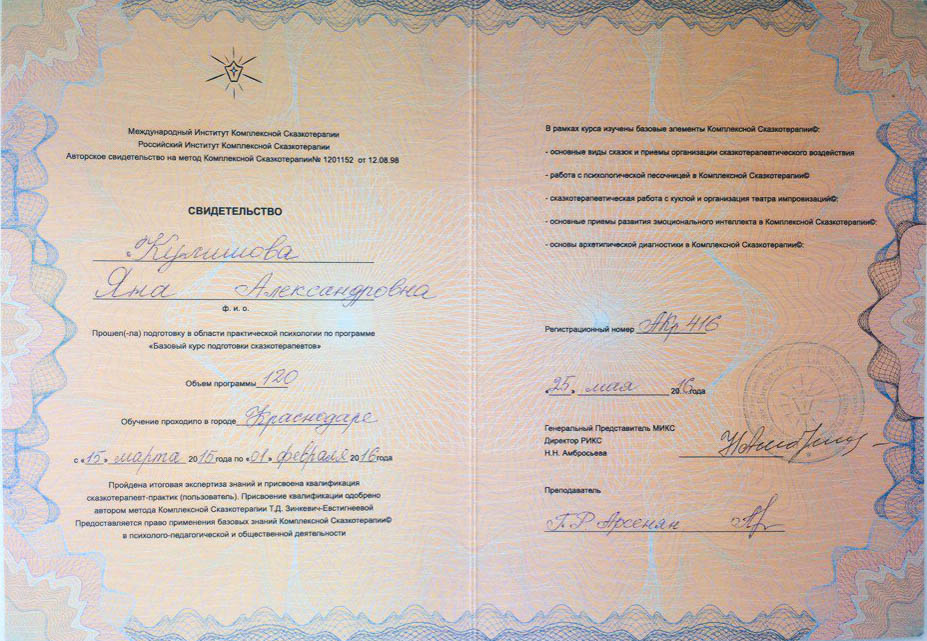 Международный Институт Комплексной Сказкотерапии
Российский Институт Комплексной Сказкотерапии
Авторское свидетельство на метод Комплексной Сказкотерапии№ 1201152 от 12.08.98
СВИДЕТЕЛЬСТВО
Яна Александровна
ф. и. о.
Прошел(-ла) подготовку в области практической психологии по программе
«Базовый курс подготовки сказкотерапевтов»
Объем программы 120
Обучение проходило в городе Краснодаре
с «15» марта 2015 года по «01» февраля 2016 года
Пройдена итоговая экспертиза знаний и присвоена квалификация
сказкотерапевт-практик (пользователь). Присвоение квалификации одобрено
автором метода Комплексной Сказкотерапии Т.Д. Зинкевич-Евстигнеевой
Предоставляется право применения базовых знаний Комплексной Сказкотерапии©
в психолого-педагогической и общественной деятельности
В рамках курса изучены базовые элементы Комплексной Сказкотерапии©:
- основные виды сказок и приемы организации сказкотерапевтического воздействия
- работа с психологической песочницей в Комплексной Сказкотерапии©
- сказкотерапевтическая работа с куклой и организация театра импровизаций©:
- основные приемы развития эмоционального интеллекта в Комплексной Сказкотерапии©:
- основы архетипической диагностики в Комплексной Сказкотерапии©:
Регистрационный номер АКр 416
«25» мая 2016 года
Генеральный Представитель МИКС
Директор РИКС
Н.Н. Амбросьева
Преподаватель
Г.Р Арсенян